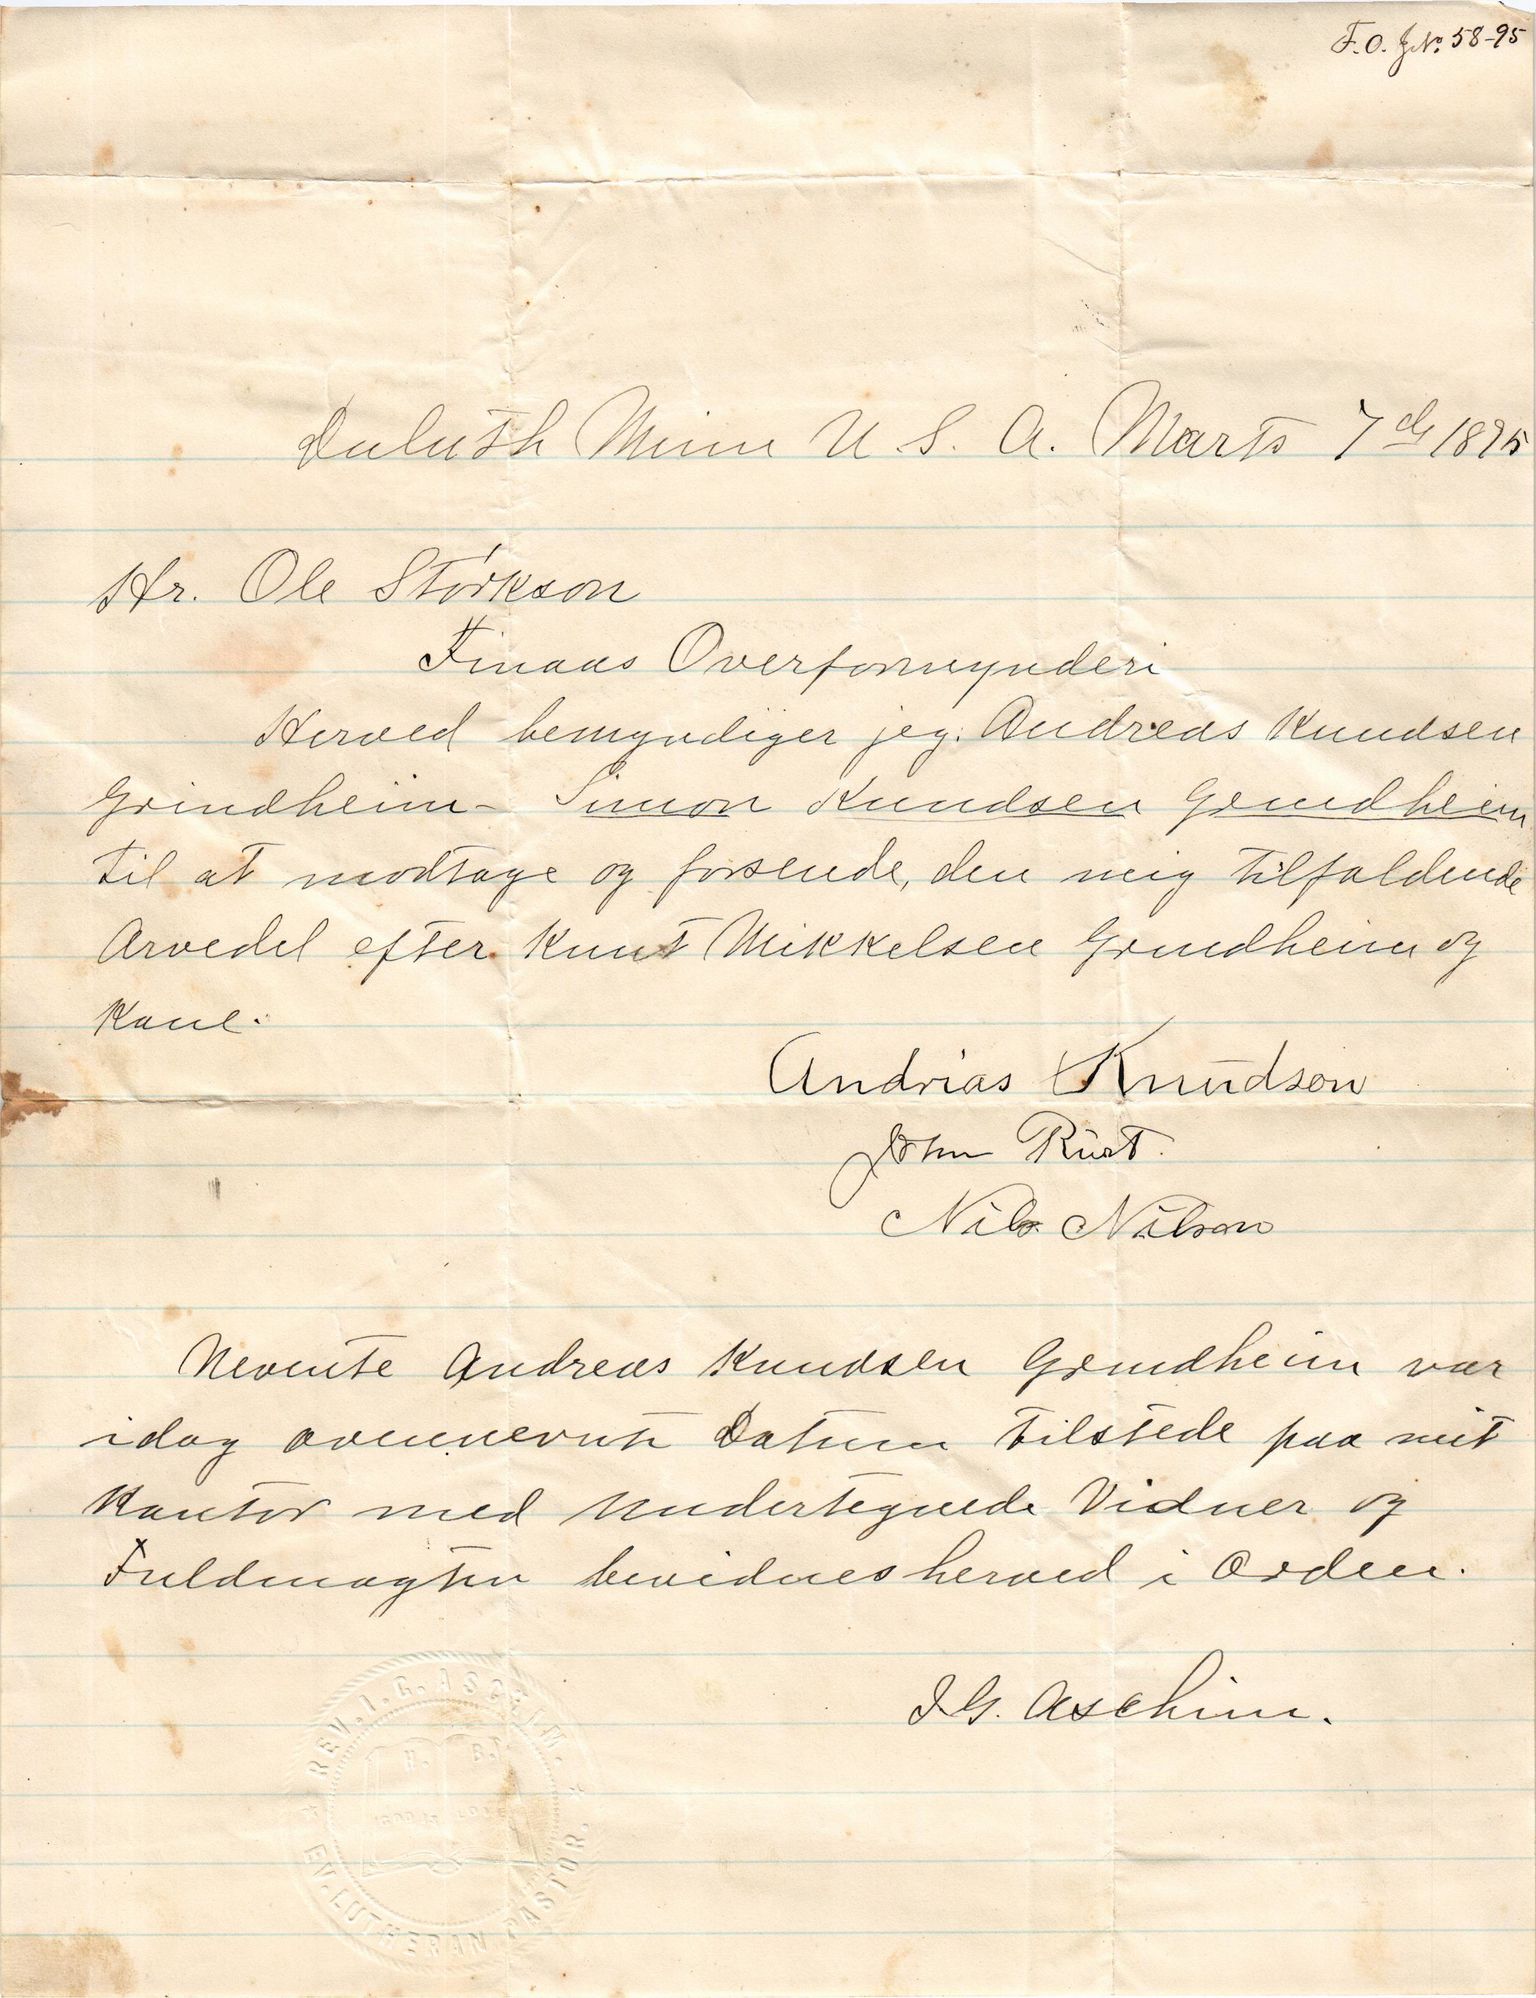 F. O. J No. 58-95
Duluth Minn U. S. A. Marts 7de 1895
Hr. Ole Størkson
Finaas Overformynderi
Herved bemyndiger jeg, Andreas Knudsen
Grindheim - Simon Knudsen Grindheim
til at modtage og forsende, den mig tilfaldende
Arvedel efter Knut Mikkelsen Grindheim og
Kone.
Andrias Knudson
John
Nils Nilson
Nevnte Andreas Knudsen Grindheim var
idag ovennevnte Datum tilstede paa mit
Kontor med undertegnede Vidner og
Fuldmagten bevidnes herved i Orden.
I. G. Aschim.
REV. I. G. ASCHIM.
H. B.
GOD IS LOVE
EV. LUTHERAN PASTOR.